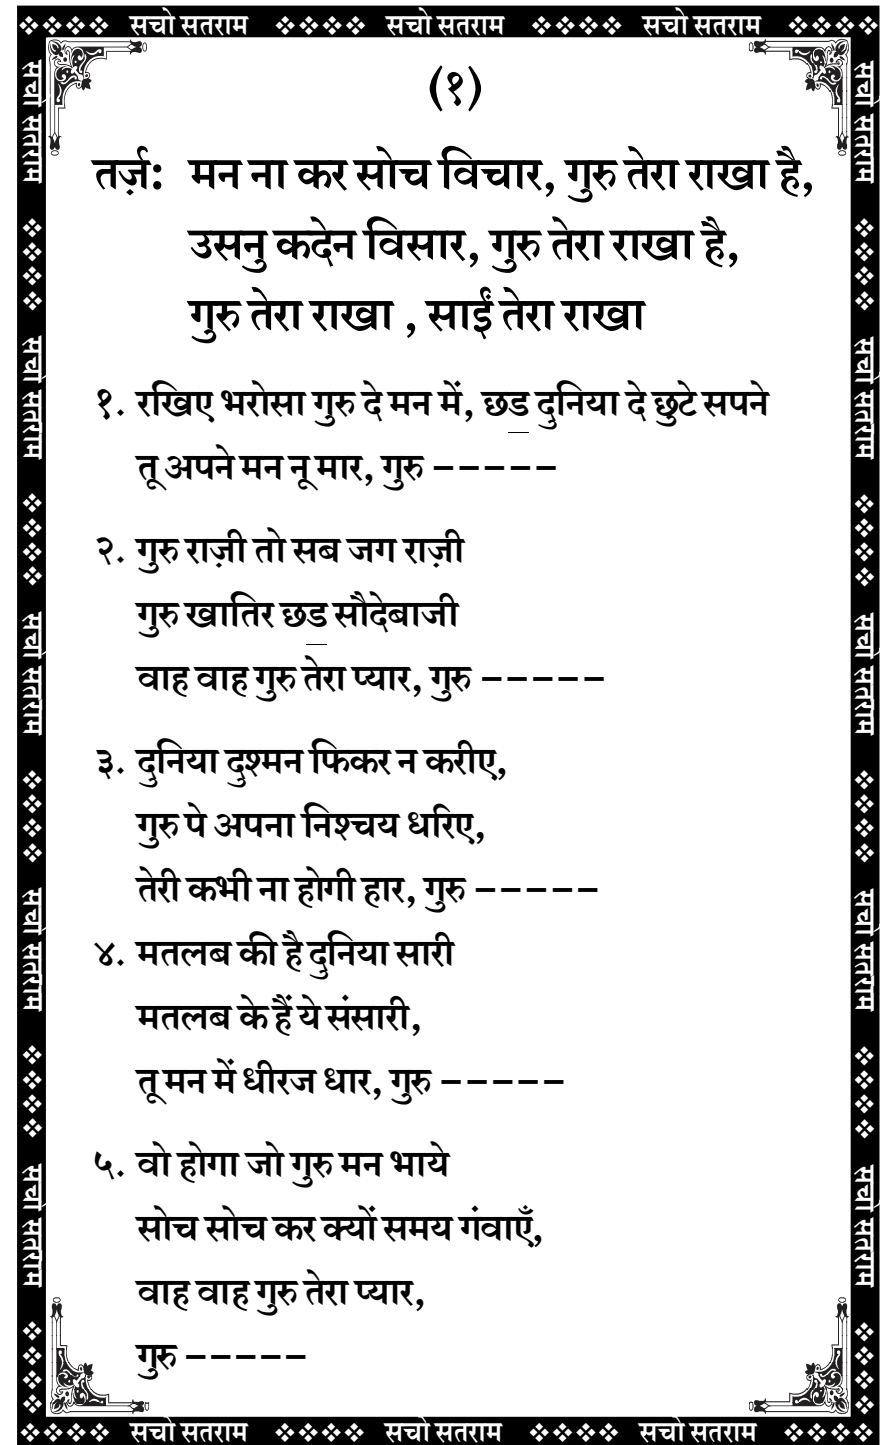 सचो सतराम सचो सतराम सचो सतराम
(१)
तर्ज़: मन ना कर सोच विचार, गुरु तेरा राखा है,
उसनु कदेन विसार, गुरु तेरा राखा है,
गुरु तेरा राखा , साईं तेरा राखा
१. रखिए भरोसा गुरु दे मन में, छड॒ दुनिया दे छुटे सपने
तू अपने मन नू मार, गुरु −−−−−
२. गुरु राज़ी तो सब जग राज़ी
गुरु खातिर छड॒ सौदेबाजी
वाह वाह गुरु तेरा प्यार, गुरु −−−−−
३. दुनिया दुश्मन फिकर न करीए,
गुरु पे अपना निश्चय धरिए,
तेरी कभी ना होगी हार, गुरु −−−−−
४. मतलब की है दुनिया सारी
मतलब के हैं ये संसारी,
तू मन में धीरज धार, गुरु −−−−−
५. वो होगा जो गुरु मन भाये
सोच सोच कर क्यों समय गंवाएँ,
वाह वाह गुरु तेरा प्यार,
गुरु −−−−−
सचो सतराम सचो सतराम सचो सतराम
सचो सतराम सचो सतराम सचो सतराम सचो सतराम सचो सतराम
सचो सतराम सचो सतराम सचो सतराम सचो सतराम सचो सतराम